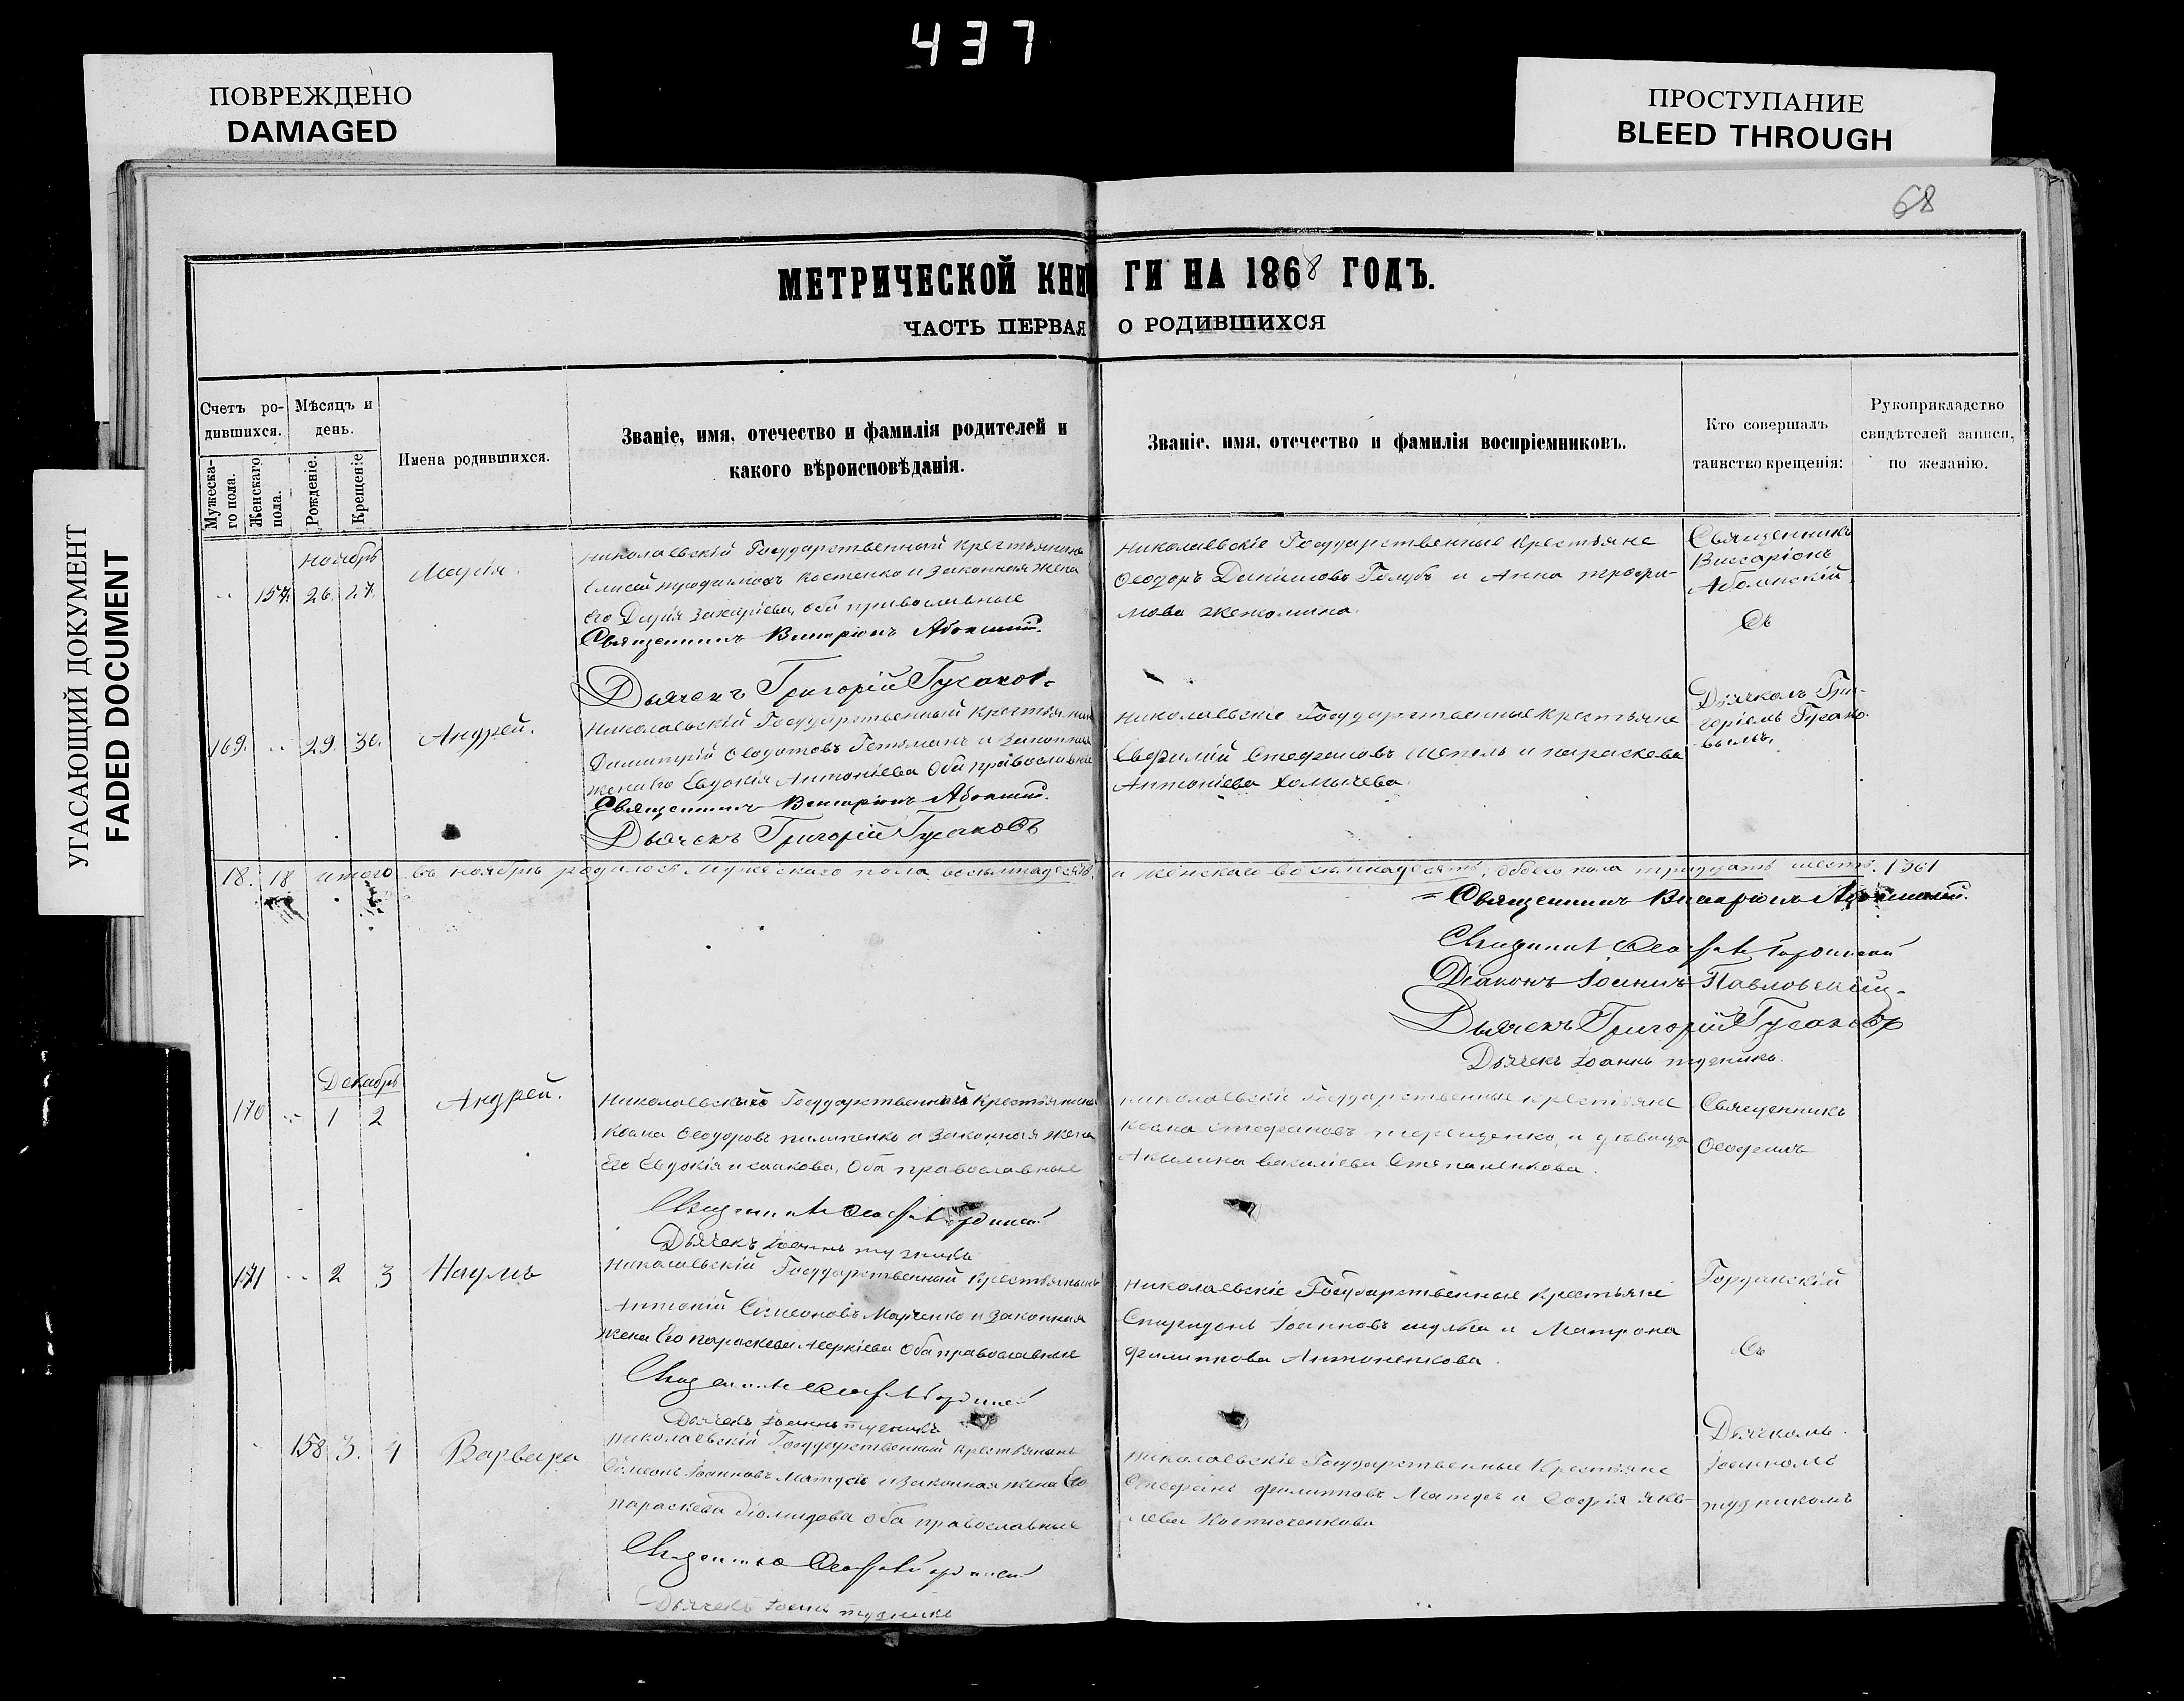 437
ПОВРЕЖДЕНО
DAMAGED
ПРОСТУПАНИЕ
BLEED THROUGH
УГАСАЮЩИЙ ДОКУМЕНТ
FADED DOCUMENT
68
МЕТРИЧЕСКОЙ КНИГИ НА 1868 ГОДЪ.
ЧАСТЬ ПЕРВАЯ О РОДИВШИХСЯ
Счетъ ро-
дившихся.
Мужеска-
го пола.
Женскаго
пола.
Мѣсяцъ и
день.
Рожденіе.
Крещеніе
Имена родившихся.
Званіе, имя, отечество и фамилія родителей и
какого вѣроисповѣданія.
Званіе, имя, отечество и фамилія воспріемниковъ.
Кто совершалъ
таинство крещенія:
Рукоприкладство
свидѣтелей записи,
по желанію.
Ноябрь
157. 26. 27.
Марія.
Николаевскій Государственный Крестьянинъ
Елисей Трофимовъ Костенко и Законная жена
Его Дарія Захаріева, оба православные
Священникъ Виссаріонъ
Дьячекъ Григорій Гусаковъ
Николаевскіе Государственные Крестьяне
Ѳеодоръ Даниловъ Голубъ и Анна Трофи-
мова
Священникъ
Виссаріонъ
Съ
Дьячкомъ Гри-
горіемъ Гусако-
вымъ.
169. 29. 30.
Андрей.
Николаевскій Государственный Крестьянинъ
Димитрій Ѳедотовъ Гетьманъ и Законная
жена его Евдокія Антоніева Оба православные
Священникъ Виссаріонъ
Дьячекъ Григорій Гусаковъ
Николаевскіе Государственные Крестьяне
Евфимій Стефановъ Шепель и Параскева
Антоніева
18. 18 итого въ ноябрѣ родилось мужескаго пола восемнадсять, и женскаго восемнадсять, обоего пола тридцать шесть. / 36 /
Священникъ Виссаріонъ
Діаконъ Іоаннъ Павловскій
Дьячекъ Григорій Гусаковъ
Дьячекъ Іоаннъ
Декабрь
170 1 2
Андрей.
Николаевскій Государственный Крестьянинъ
Косма Ѳеодоровъ Пилипенко и Законная жена
Его Евдокія Исаакова, Оба православные
Дьячекъ Іоаннъ
Николаевскіе Государственные Крестьяне
Косма Стефановъ Терещенко, и дѣвица
Акилина Василіева Степаненкова.
Священникъ
171 2 3
Наумъ
Николаевскій Государственный Крестьянинъ
Антоній Симеоновъ Марченко и Законная
жена Его Параскева Оба православные
Дьячекъ Іоаннъ
Николаевскіе Государственные Крестьяне
Спиридонъ Іоанновъ Шульга и Матрона
Филиппова Антоненкова.
Съ
158 3. 4
Варвара
Николаевскій Государственный Крестьянинъ
Симеонъ Іоанновъ и Законная жена Его
Параскева Діомидова оба православные
Дьячекъ
Николаевскіе Государственные Крестьяне
Стефанъ Филипповъ и Софія Яко-
влева
Дьячкомъ
Іоанномъ